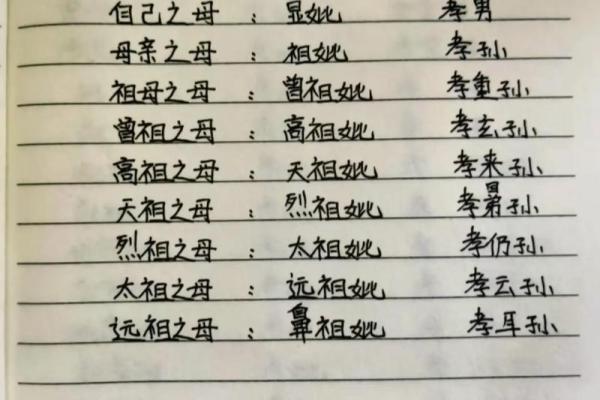 自己之母：显妣 孝男
母亲之母：祖妣 孝孙
祖母之母：曾祖妣 孝重孙
曾祖之母：高祖妣 孝玄孙
高祖之母：天祖妣 孝来孙
天祖之母：烈祖妣 孝晜孙
烈祖之母：太祖妣 孝仍孙
太祖之母：远祖妣 孝云孙
远祖之母：鼻祖妣 孝耳孙